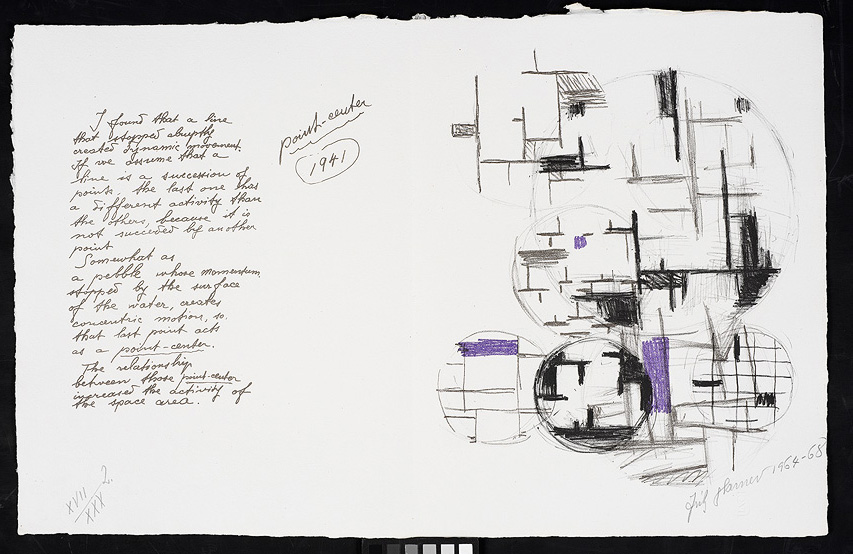 I found that a line
that stopped abruptly
created dynamic movement.
If we assume that a
line is a succession of
points, the last one has
a different activity than
the others, because it is
not succeded by another
point
Somewhat as
a pebble whose momentum
stopped by the surface
of the water, creates
concentric motion, so
that last point acts
as a point-center.
The relationship
between those point-center
increased the activity of
the space area.
point-center
1941
XVII 2.
XXX
Fritz Glarner 1964-68